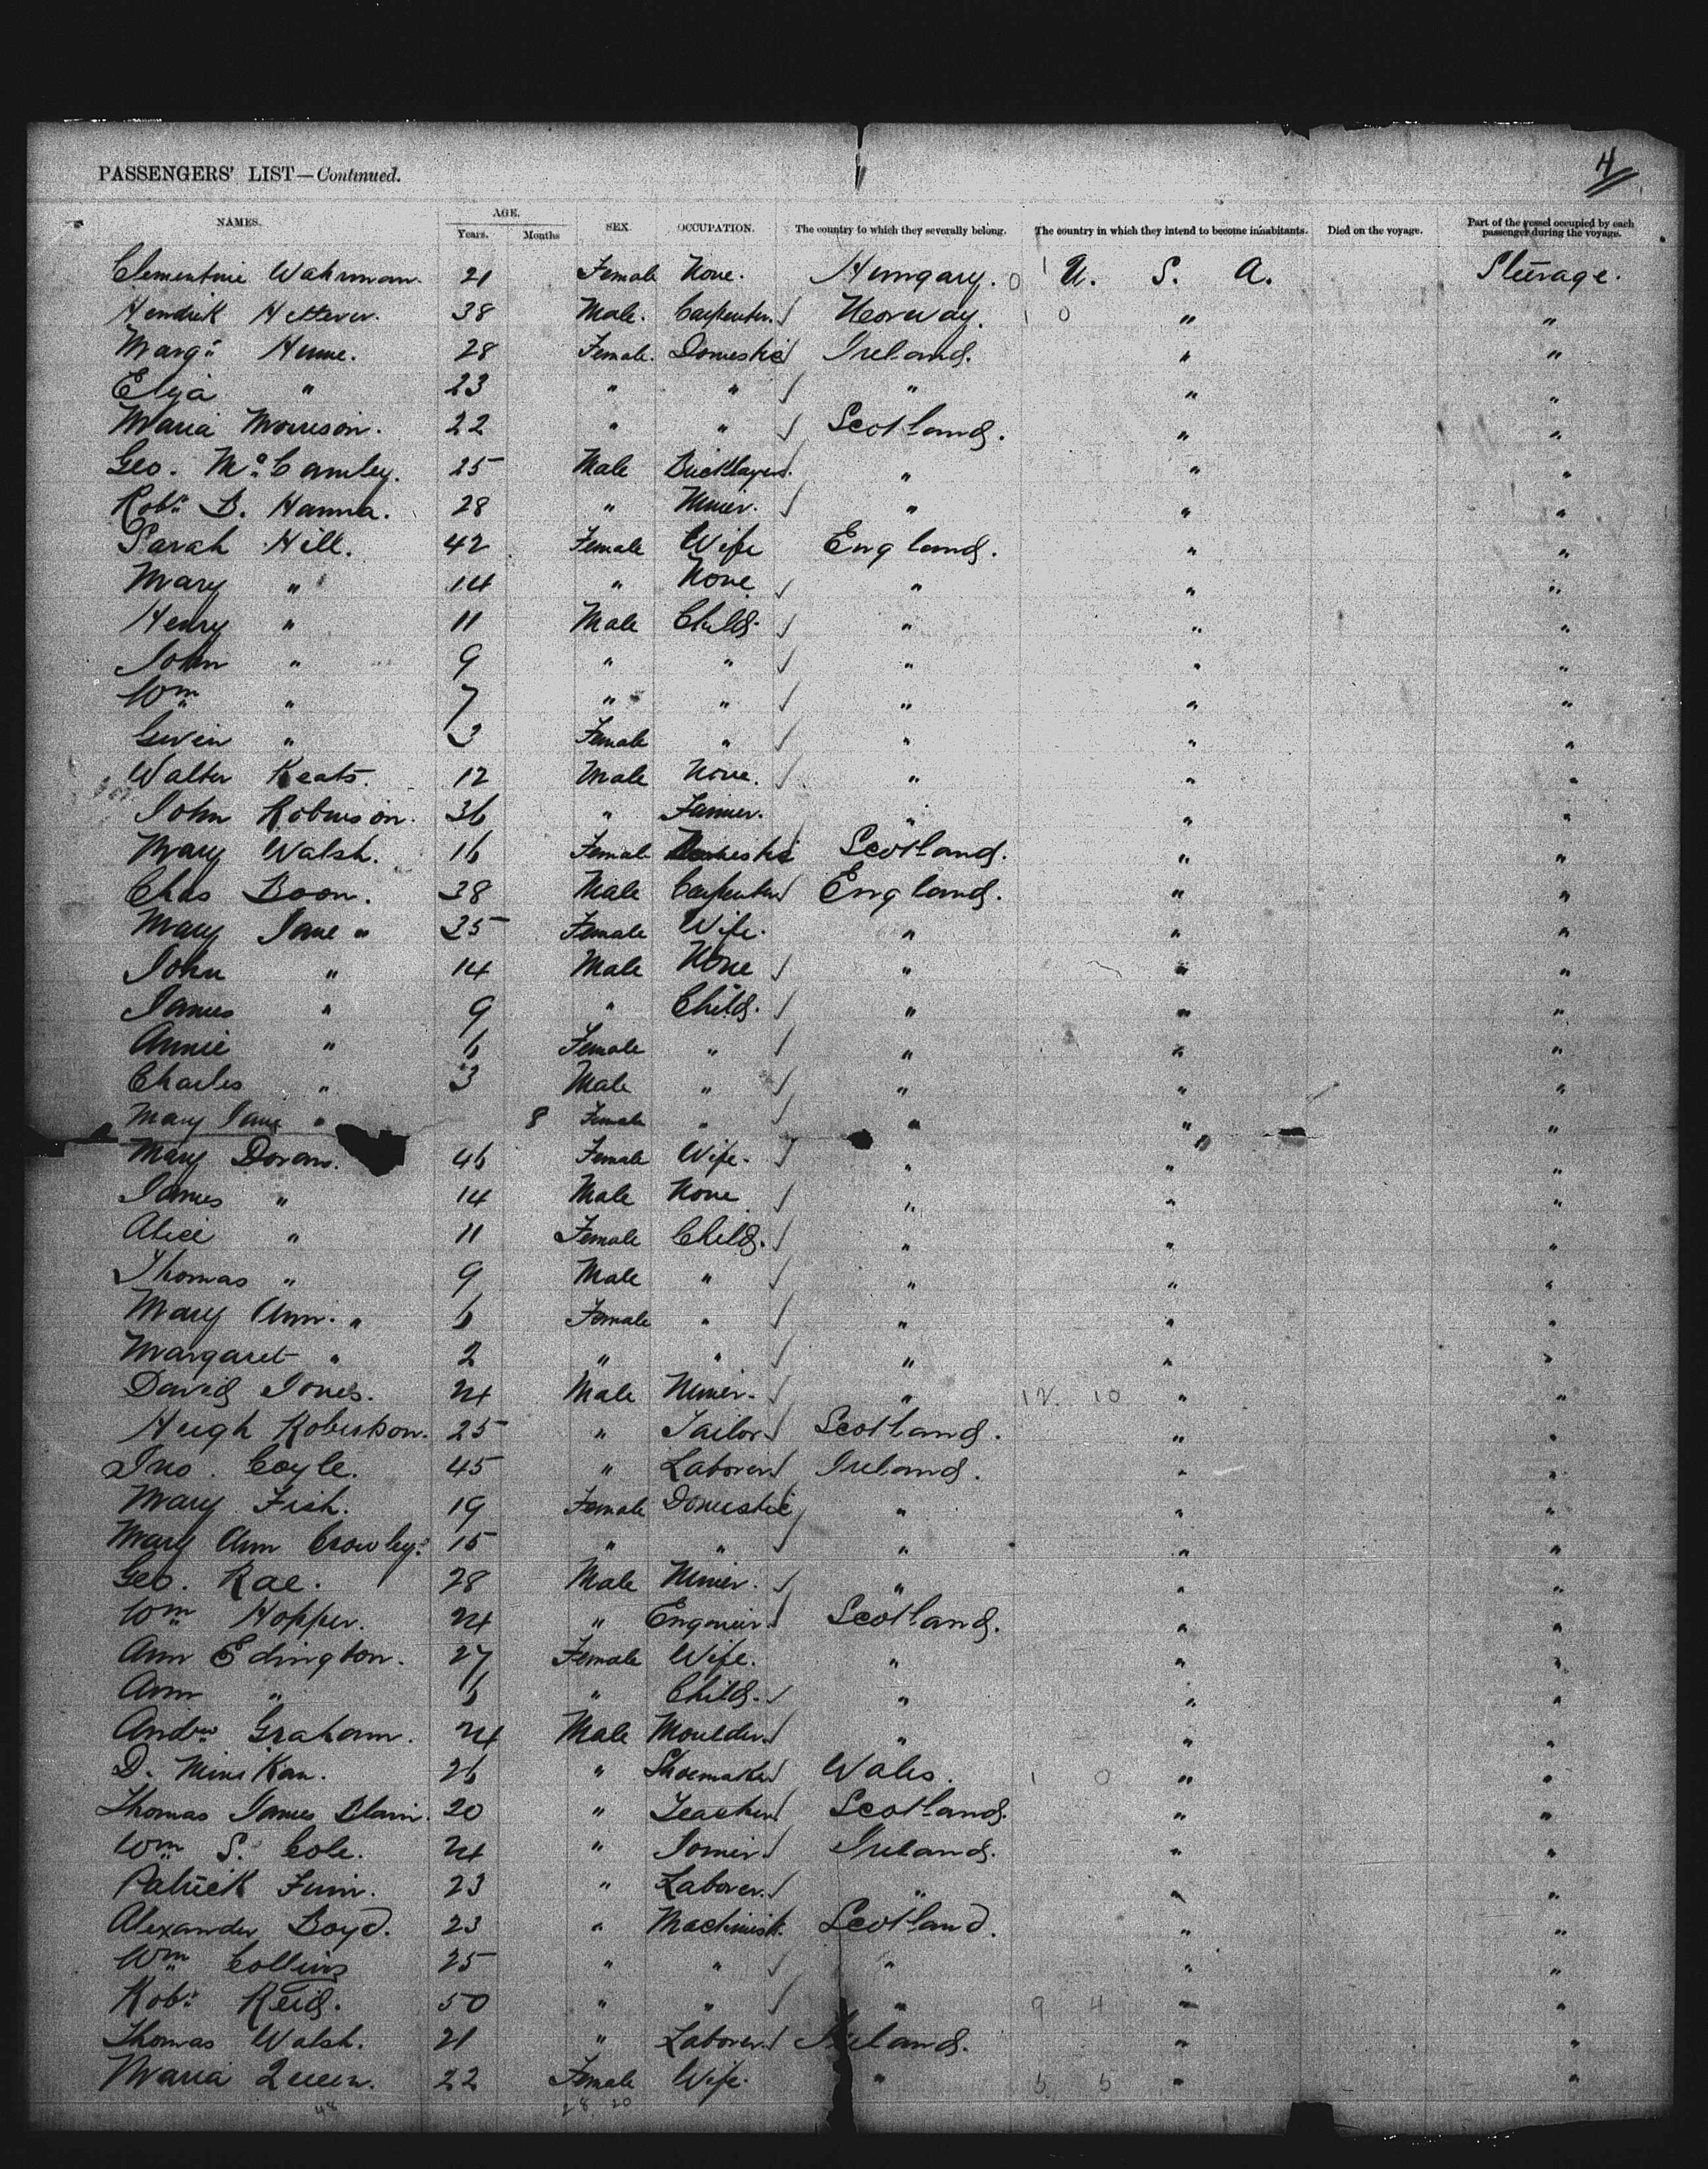 4
PASSENGERS' LIST—Continued.
NAMES. AGE. Years. Months SEX. OCCUPATION. The country to which they severally belong. The country in which they intend to become inhabitants. Died on the voyage. Part of the vessel occupied by each passenger during the voyage.
Clementine Wahrman. 21 Female None. Hungary. 0 1 U. S. A. Steerage.
Hendrik 38 Male. Carpenter. Norway. 1 0 " "
Margt Hume. 28 Female. Domestic Ireland. " "
Eliza " 23 " " " " "
Maria Morrison. 22 " " Scotland. " "
Geo. Mc Camley. 25 Male Bricklayer. " " "
Robt B. Hanna. 28 " Miner. " " "
Sarah Hill. 42 Female Wife England. " "
Mary " 14 " None " " "
Henry " 11 Male Child. " " "
John " 9 " " " " "
Wm " 7 " " " " "
" 3 Female " " " "
Walter Keats. 12 Male None. " " "
John Robinson. 36 " Farmer. " " "
Mary Walsh. 16 Female Domestic Scotland. " "
Chas Boon. 38 Male Carpenter England. " "
Mary Jane " 35 Female Wife. " " "
John " 14 Male None " " "
James " 9 " Child. " " "
Annie " 6 Female " " " "
Charles " 3 Male " " " "
Mary Jane " 8 Female " " " "
Mary Doran. 46 Female Wife. " " "
James " 14 Male None " " "
Alice " 11 Female Child. " " "
Thomas " 9 Male " " " "
Mary Ann. " 6 Female " " " "
Margaret " 2 " " " " "
David Jones. 24 Male Miner. " 12 10 " "
Hugh Robertson. 25 " Tailor Scotland. " "
Jno. Coyle. 45 " Laborer Ireland. " "
Mary Fish. 19 Female Domestic " " "
Mary Ann Crowley. 15 " " " " "
Geo. Rae. 28 Male Miner. " " "
Wm Hopper. 24 " Engineer Scotland. " "
Ann Edington. 27 Female Wife. " " "
Ann " 6 " Child. " " "
Andw Graham. 24 Male Moulder " " "
D. Minikan. 26 " Shoemaker Wales. 1 0 " "
Thomas James Blain. 20 " Teacher Scotland. " "
Wm S. Cole. 24 " Joiner Ireland. " "
Patrick Finn. 23 " Laborer. " " "
Alexander Boyd. 23 " Machinist. Scotland. " "
Wm Collins 25 " " " " "
Robt Reid. 50 " " " 9 4 " "
Thomas Walsh. 21 " Laborer Ireland. " "
Maria Queen. 22 Female Wife. " 5 5 " "
48 28 20